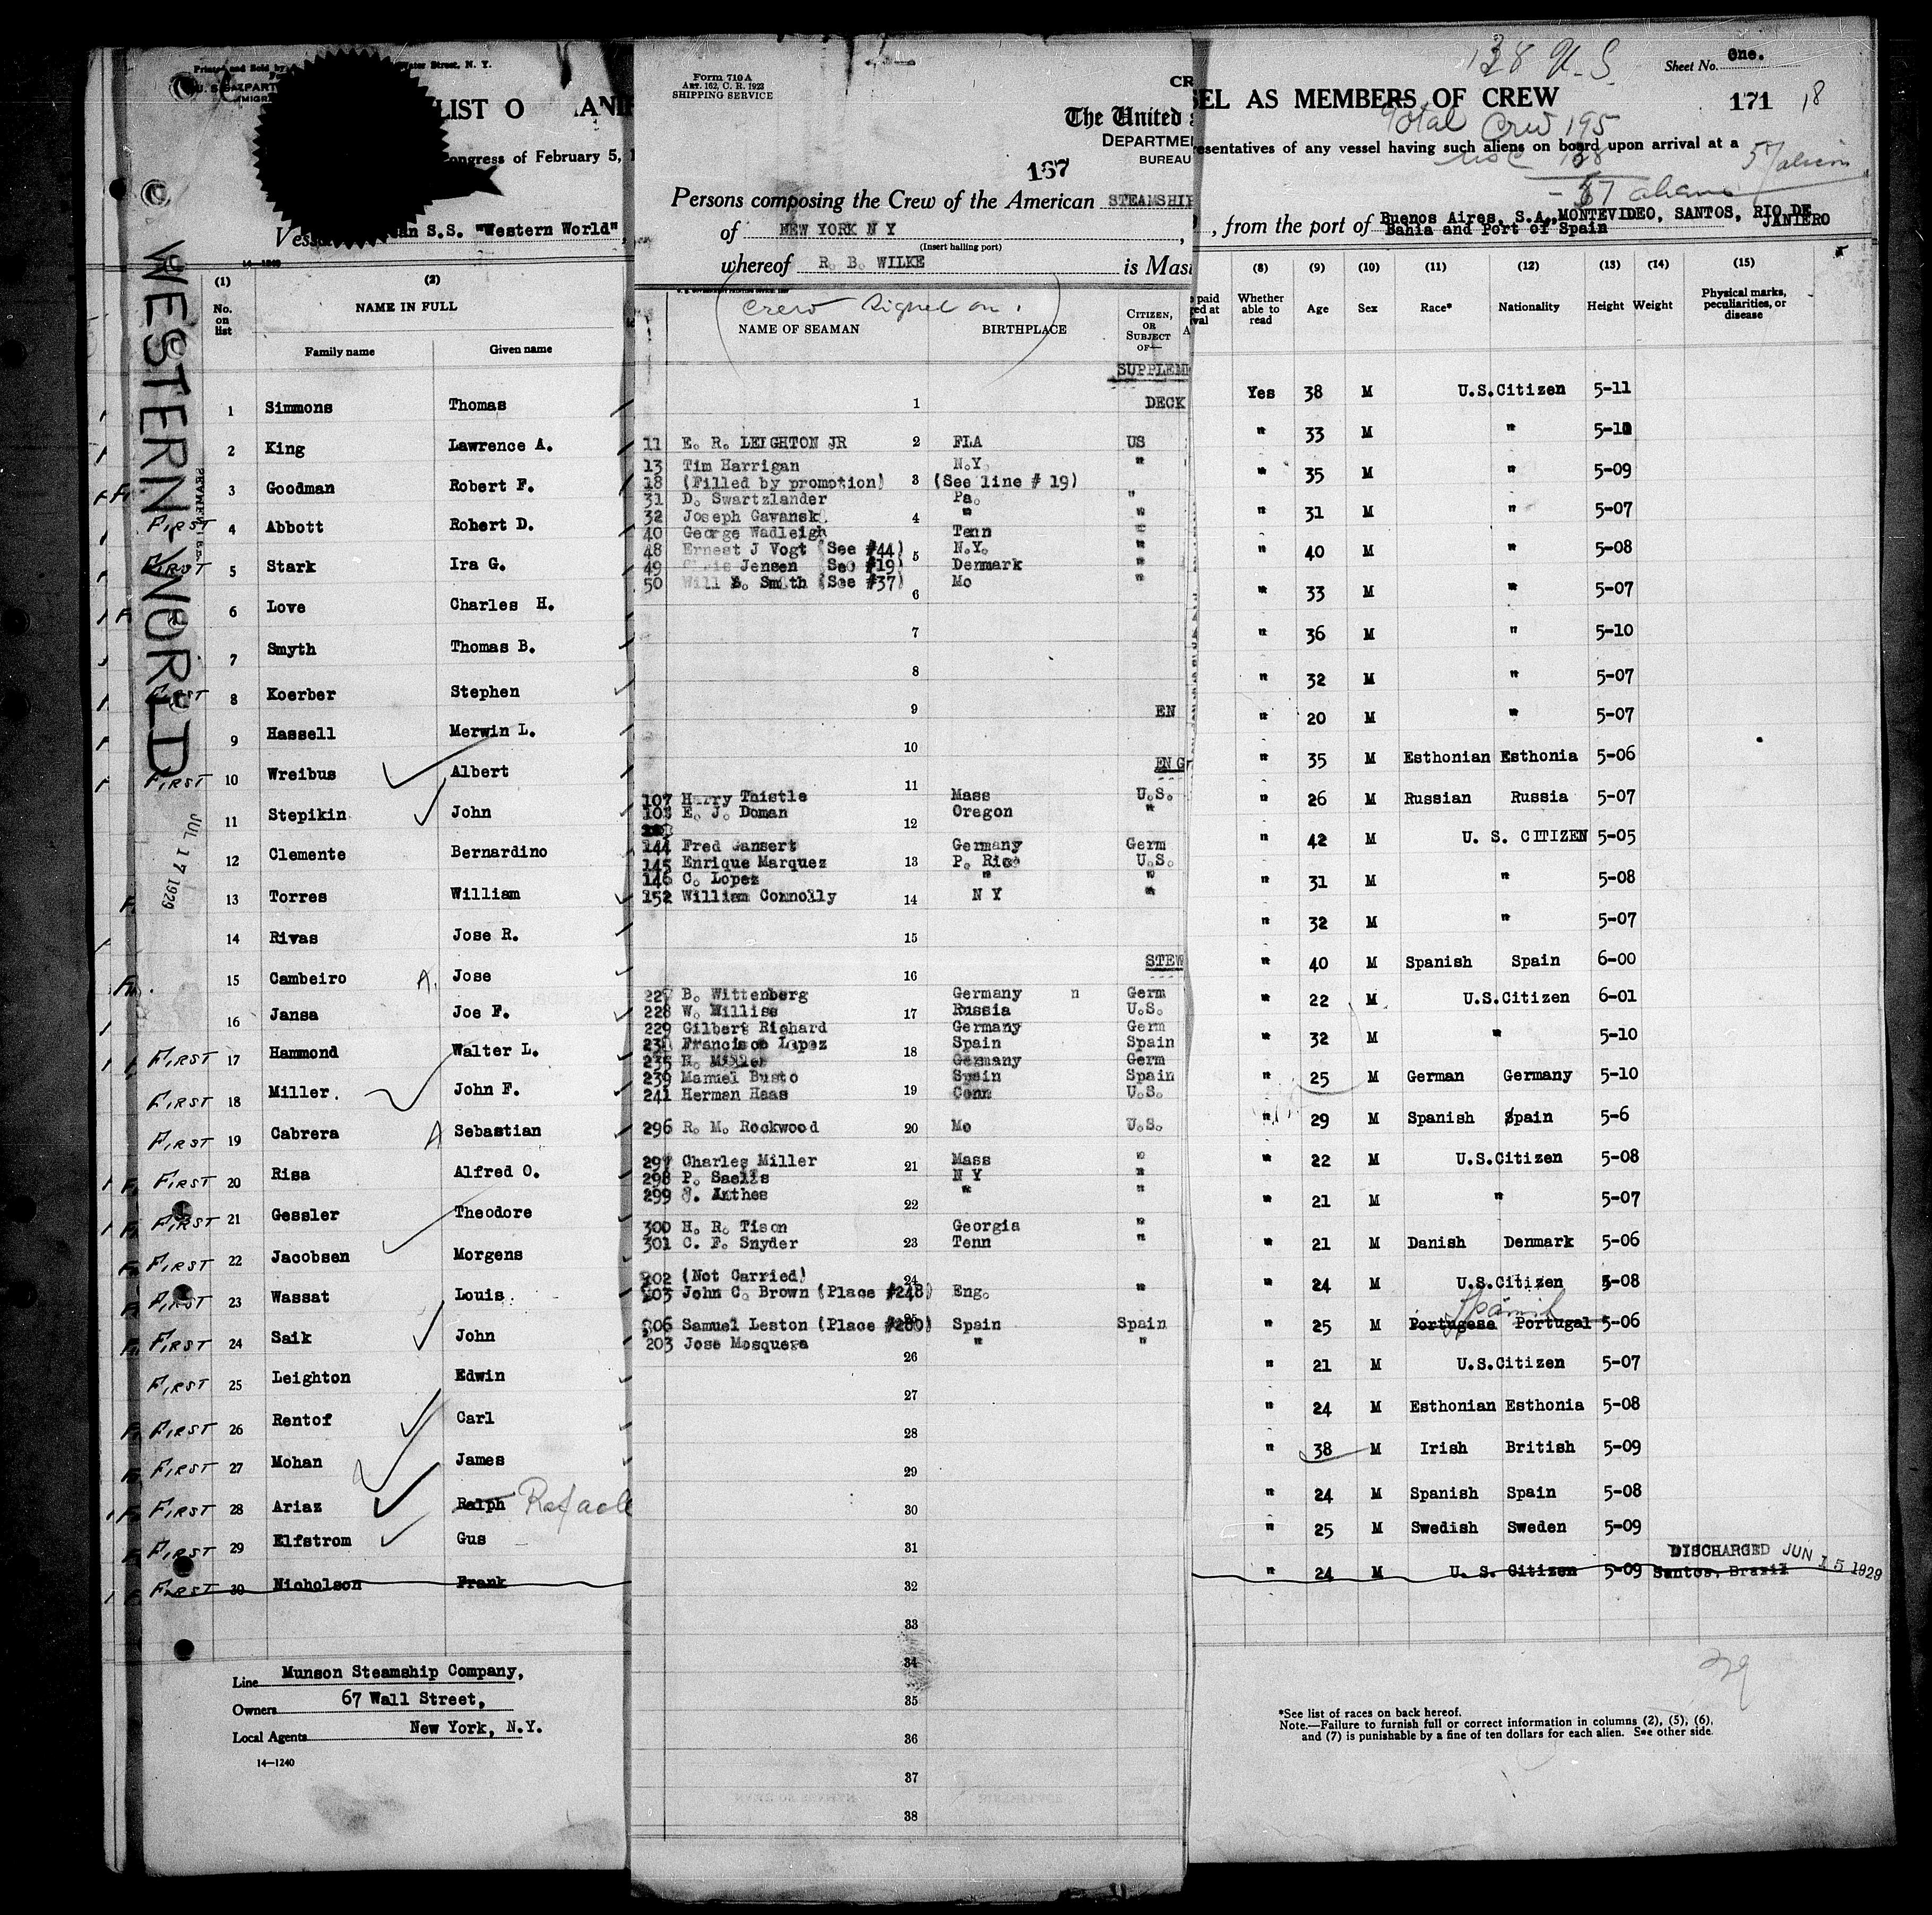 Water Street, N. Y.
LIST O
ongress of February 5, 1
S.S. "Western World",
14—1240
WESTERN WORLD
JUL 17 1929
(1) (2)
No. on list
NAME IN FULL
Family name Given name
1 Simmons Thomas
2 King Lawrence A.
3 Goodman Robert F.
FIRST 4 Abbott Robert D.
FIRST 5 Stark Ira G.
6 Love Charles H.
7 Smyth Thomas B.
FIRST 8 Koerber Stephen
9 Hassell Merwin L.
FIRST 10 Wreibus Albert
11 Stepikin John
12 Clemente Bernardino
13 Torres William
14 Rivas Jose R.
15 Cambeiro A. Jose
16 Jansa Joe F.
FIRST 17 Hammond Walter L.
FIRST 18 Miller. John F.
FIRST 19 Cabrera A Sebastian
FIRST 20 Risa Alfred O.
FIRST 21 Gessler Theodore
FIRST 22 Jacobsen Morgens
FIRST 23 Wassat Louis
FIRST 24 Saik John
FIRST 25 Leighton Edwin
FIRST 26 Rentof Carl
FIRST 27 Mohan James
FIRST 28 Ariaz Ralph Rafaele
FIRST 29 Elfstrom Gus
FIRST 30 Nicholson Frank
Line Munson Steamship Company,
Owners 67 Wall Street,
Local Agents New York, N.Y.
14—1240
Form 710 A
ART. 162, C. R. 1923
SHIPPING SERVICE
CR
The United
DEPARTME
BUREAU
167
Persons composing the Crew of the American STEAMSHIP
of NEW YORK N Y,
(Insert hailing port)
whereof R. B. WILKE is Mas
Crew Signed on.
NAME OF SEAMAN BIRTHPLACE CITIZEN, OR SUBJECT OF—
SUPPLEME
1 DECK
11 E. R. LEIGHTON JR 2 FLA US
13 Tim Harrigan N.Y. "
18 (Filled by promotion) 3 (See line # 19)
31 D. Swartzlander Pa. "
32 Joseph Gavansk. 4 " "
40 George Wadleigh Tenn "
48 Ernest J Vogt (See #44) 5 N.Y. "
49 Jensen (See #19) Denmark "
50 Will E. Smith (See #37) Mo "
6
7
8
9 EN
10
ENG
11
107 Harry Thistle Mass U.S.
108 E. J. Doman Oregon "
12
144 Fred Gansert Germany Germ
145 Enrique Marquez 13 P. Rico U.S.
146 C. Lopez " "
152 William Connolly 14 N Y "
15
STEW
16
227 B. Wittenberg Germany n Germ
228 W. Williss 17 Russia U.S.
229 Gilbert Richard Germany Germ
231 Francisco Lopez 18 Spain Spain
235 H. Miller Germany Germ
239 Manuel Busto Spain Spain
241 Herman Haas 19 Conn U.S.
296 R. M. Rockwood 20 Mo U.S.
297 Charles Miller 21 Mass "
298 P. Saelis N Y "
299 J. Anthes " "
22
300 H. R. Tison Georgia "
301 C. F. Snyder 23 Tenn "
302 (Not Carried) 24
303 John C. Brown (Place #248) Eng. "
306 Samuel Leston (Place #250) Spain Spain
203 Jose Mosquera " "
26
27
28
29
30
31
32
33
34
35
36
37
38
138 U.S.
Sheet No. One.
SEL AS MEMBERS OF CREW
171 18
Total Crew 195
esentatives of any vessel having such aliens on board upon arrival at a
USC 138
57 aliens
57 aliens
, from the port of Buenos Aires, S.A., MONTEVIDEO, SANTOS, RIO DE JANIERO
Bahia and Port of Spain
(8) (9) (10) (11) (12) (13) (14) (15)
Whether able to read Age Sex Race* Nationality Height Weight Physical marks, peculiarities, or disease
Yes 38 M U.S.Citizen 5-11
" 33 M " 5-11
" 35 M " 5-09
" 31 M " 5-07
" 40 M " 5-08
" 33 M " 5-07
" 36 M " 5-10
" 32 M " 5-07
" 20 M " 5-07
" 35 M Esthonian Esthonia 5-06
" 26 M Russian Russia 5-07
" 42 M U. S. CITIZEN 5-05
" 31 M " 5-08
" 32 M " 5-07
" 40 M Spanish Spain 6-00
" 22 M U.S.Citizen 6-01
" 32 M " 5-10
" 25 M German Germany 5-10
" 29 M Spanish Spain 5-6
" 22 M U.S.Citizen 5-08
" 21 M " 5-07
" 21 M Danish Denmark 5-06
" 24 M U.S.Citizen 5-08
Spanish
" 25 M Portugese Portugal 5-06
" 21 M U.S.Citizen 5-07
" 24 M Esthonian Esthonia 5-08
" 38 M Irish British 5-09
" 24 M Spanish Spain 5-08
" 25 M Swedish Sweden 5-09
DISCHARGED JUN 15 1929
" 24 M U. S. Citizen 5-09 Santos, Brazil
29
*See list of races on back hereof.
Note.—Failure to furnish full or correct information in columns (2), (5), (6),
and (7) is punishable by a fine of ten dollars for each alien. See other side.